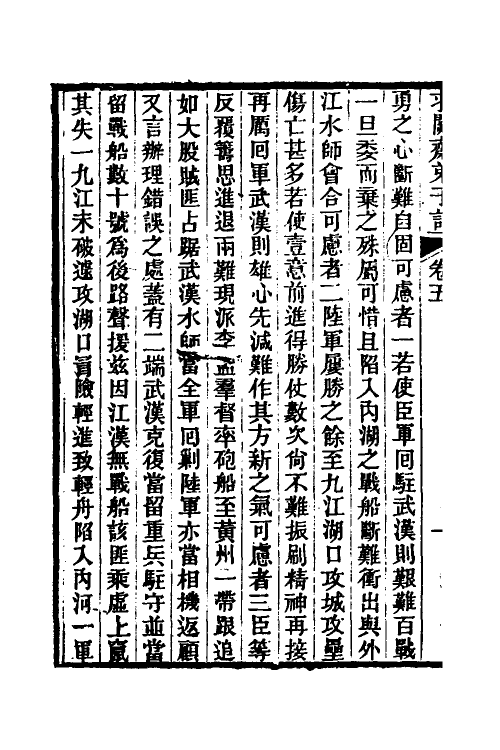 求闕齋弟子記 卷五
勇之心斷難自固可慮者一若使臣軍回駐武漢則艱難百戰
一旦委而棄之殊屬可惜且陷入內湖之戰船斷難衝出與外
江水師會合可慮者二陸軍屢勝之餘至九江湖口攻城攻壘
傷亡甚多若使壹意前進得勝仗數次尙不難振刷精神再接
再厲回軍武漢則雄心先減難作其方新之氣可慮者三臣等
反覆籌思進退兩難現派李孟羣督率砲船至黃州一帶跟追
如大股賊匪占踞武漢水師當全軍回剿陸軍亦當相機返顧
又言辦理錯誤之處蓋有二端武漢克復當留重兵駐守並當
留戰船數十號爲後路聲援茲因江漢無戰船該匪乘虛上竄
其失一九江未破遽攻湖口冒險輕進致輕舟陷入內河一軍